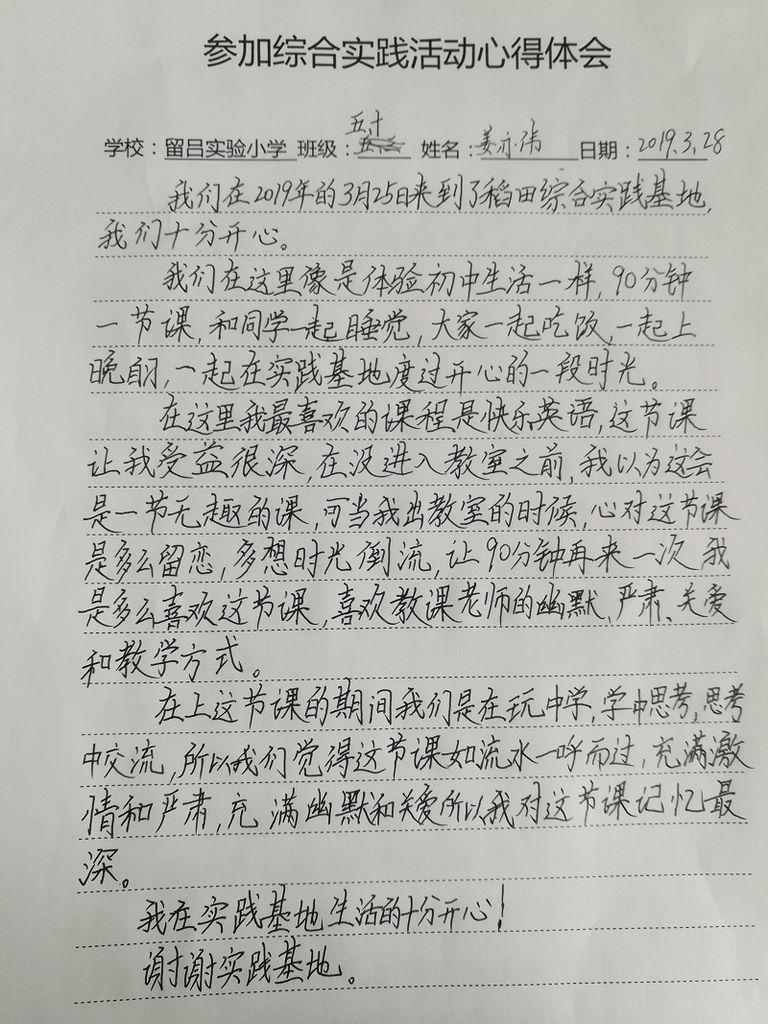 参加综合实践活动心得体会
五十
学校：留吕实验小学 班级： 姓名：姜亦伟 日期：2019.3.28
我们在2019年的3月25日来到了稻田综合实践基地，
我们十分开心。
我们在这里像是体验初中生活一样，90分钟
一节课，和同学一起睡觉，大家一起吃饭，一起上
晚自习，一起在实践基地度过开心的一段时光。
在这里我最喜欢的课程是快乐英语，这节课
让我受益很深，在没进入教室之前，我以为这会
是一节无趣的课，可当我出教室的时候，心对这节课
是多么留恋，多想时光倒流，让90分钟再来一次 我
是多么喜欢这节课，喜欢教课老师的幽默、严肃、关爱
和教学方式。
在上这节课的期间我们是在玩中学，学中思考，思考
中交流，所以我们觉得这节课如流水一呼而过，充满激
情和严肃，充满幽默和关爱所以我对这节课记忆最
深。
我在实践基地生活的十分开心！
谢谢实践基地。